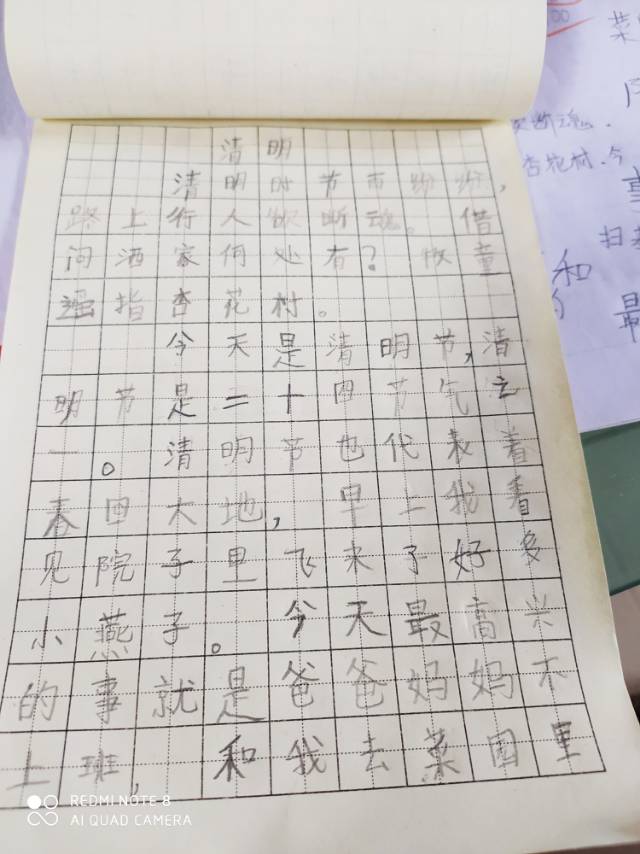 清明
清明时节雨纷纷，
路上行人欲断魂。借
问酒家何处有？牧童
遥指杏花村。
今天是清明节，清
明节是二十四节气之
一。清明节也代表着
春回大地，早上我看
见院子里飞来了好多
小燕子。今天最高兴
的事就是爸爸妈妈不
上班，和我去菜园里
断魂.
杏花村.今
菜
扫
和
最
REDMI NOTE 8
AI QUAD CAMERA